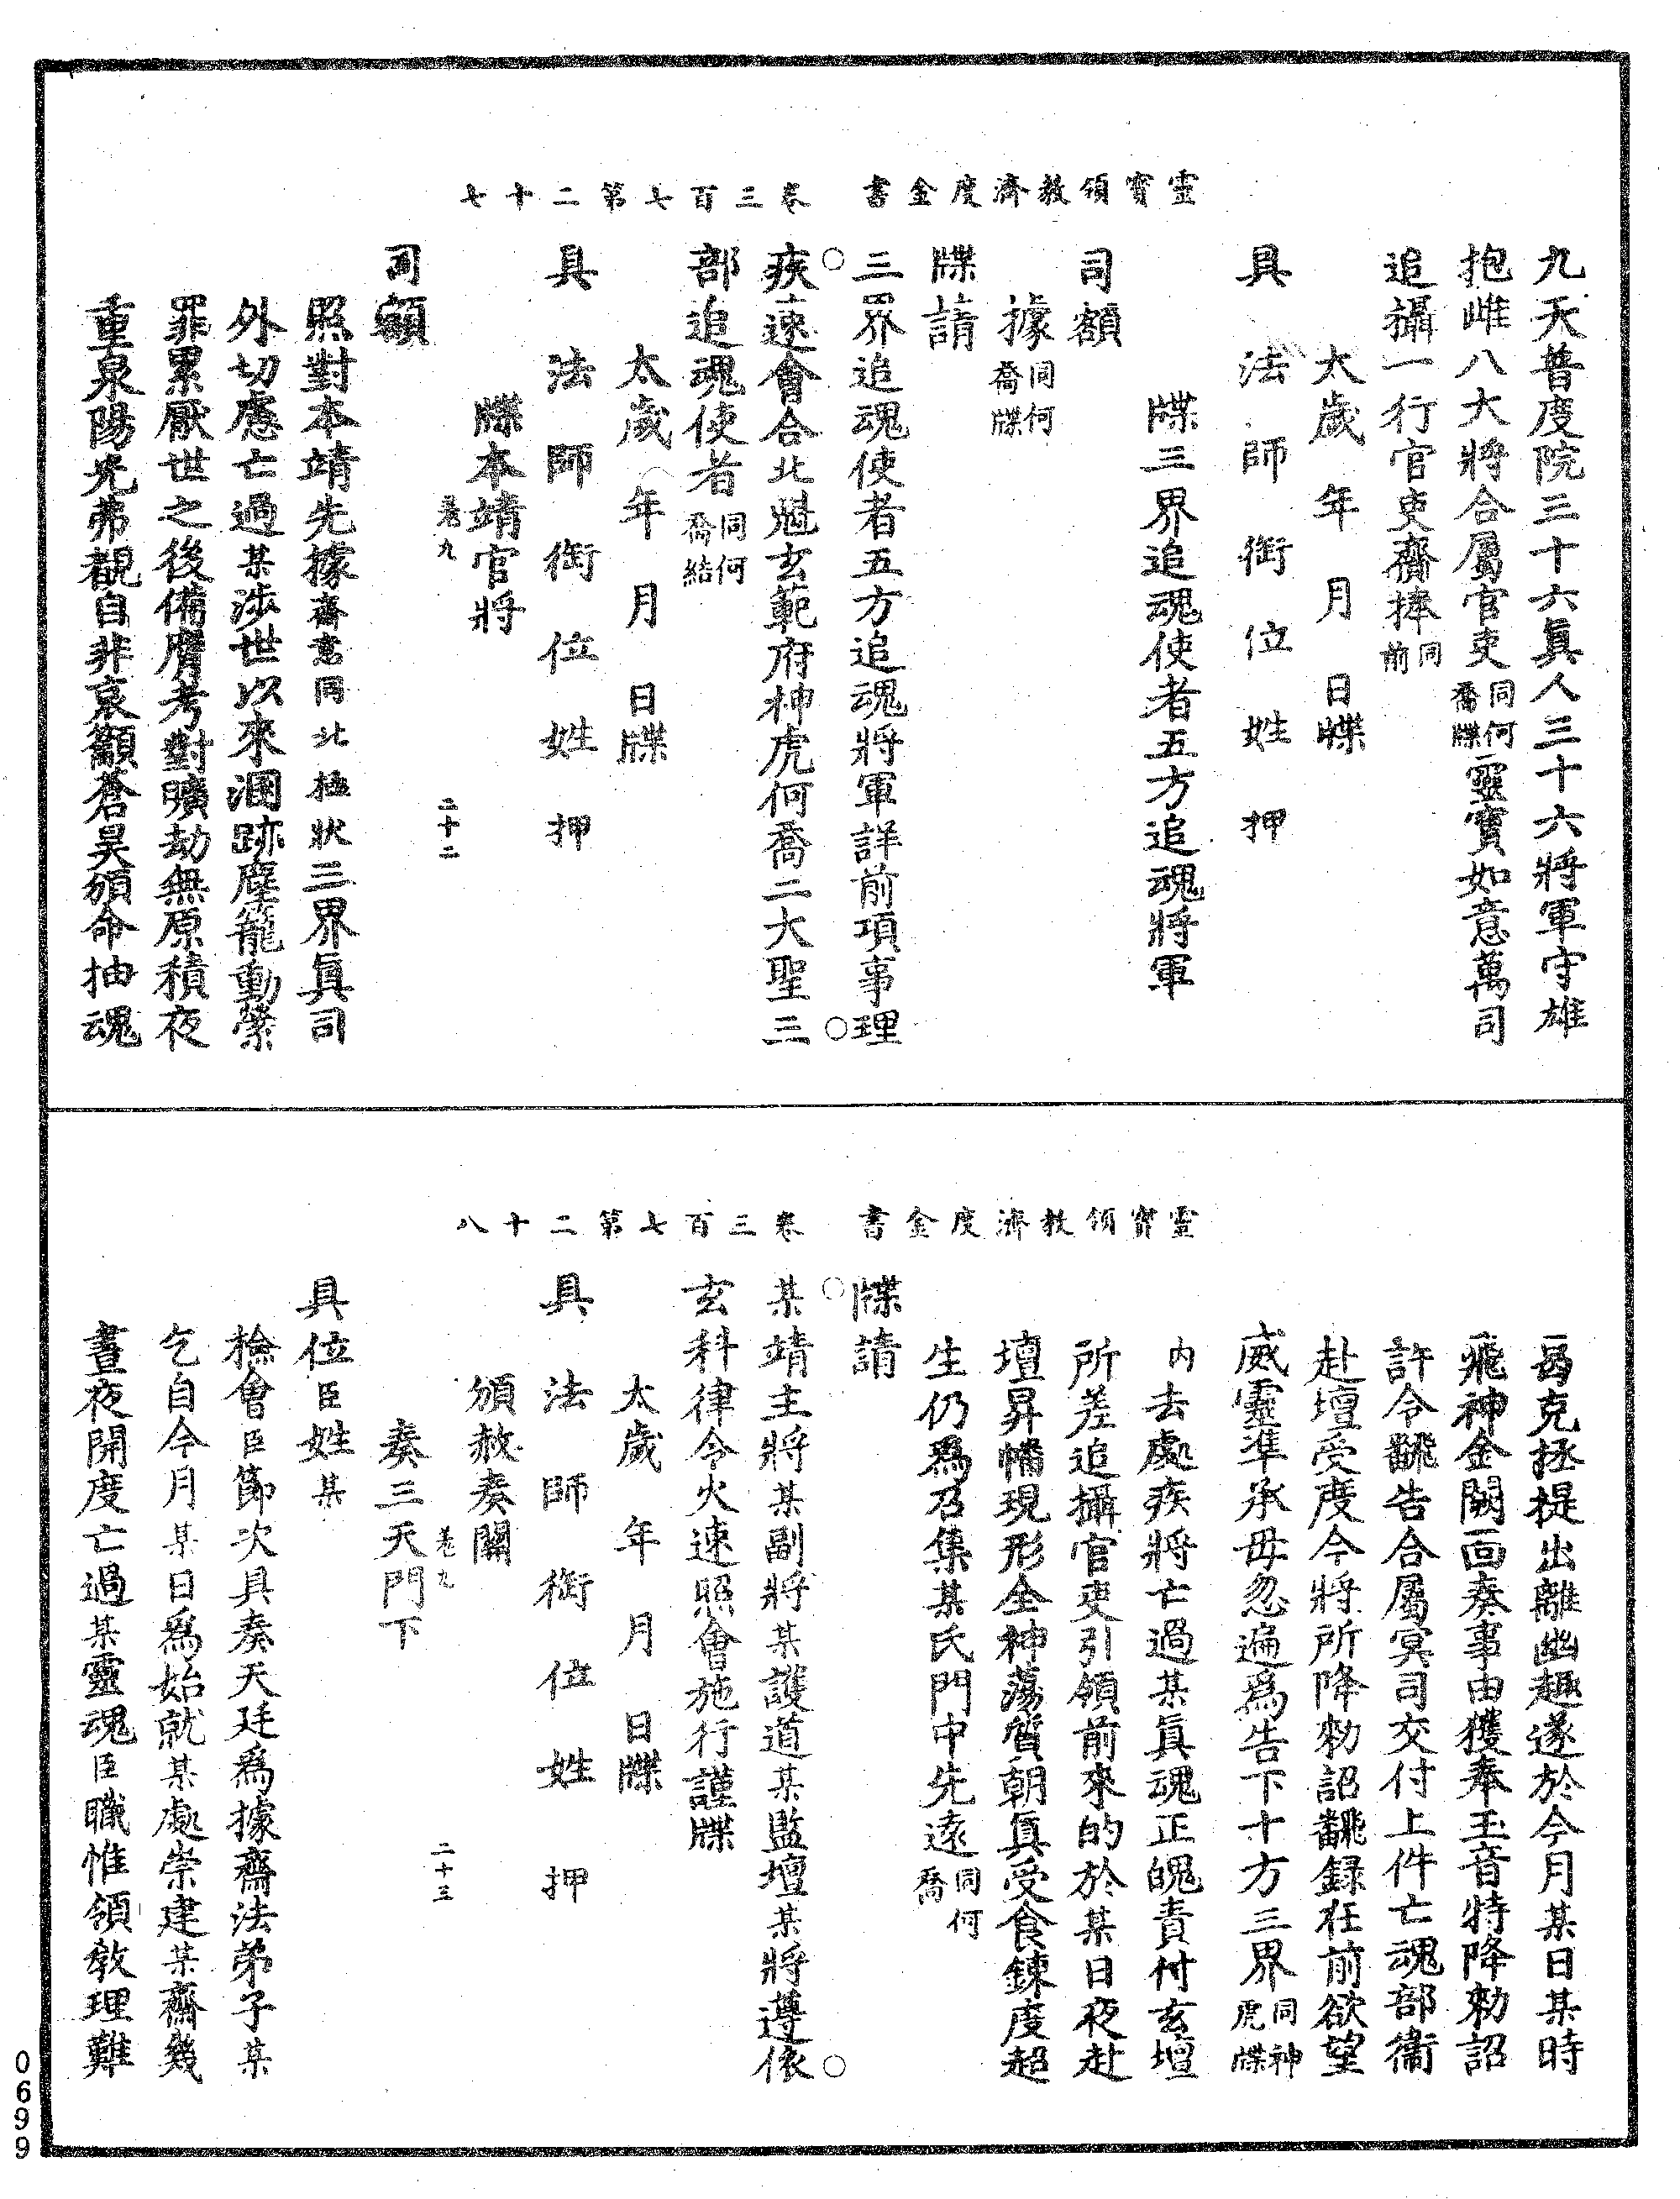 靈寶領教濟度金書　卷三百七第二十七
九天普度院三十六眞人三十六將軍守雄
抱雌八大將合屬官吏同何喬牒靈寶如意萬司
追攝一行官吏齋捧同前
太歲　年　月　日牒
具　法　師　銜　位　姓　押
牒三界追魂使者五方追魂將軍
司額
據同何喬牒
牒請
三界追魂使者五方追魂將軍詳前項事理
○疾速會合北魁玄範府神虎何喬二大聖三○
部追魂使者同何喬結
太歲　年　月　日牒
具　法　師　銜　位　姓　押
牒本靖官將
卷九　二十二
司額
照對本靖先據齋意同北極狀三界眞司
外切慮亡過某涉世以來溷跡塵籠動縈
罪累厭世之後備膺考對曠劫無原積夜
重泉陽光弗覩自非哀籲蒼昊頒命抽魂
靈寶領教濟度金書　卷三百七第二十八
曷克拯提出離幽趣遂於今月某日某時
飛神金闕面奏事由獲奉玉音特降勑詔
許令翻告合屬冥司交付上件亡魂部衛
赴壇受度今將所降勑詔翻錄在前欲望
威靈準承毋忽遍爲告下十方三界同神虎牒
內去處疾將亡過某眞魂正魄責付玄壇
所差追攝官吏引領前來的於某日夜赴
壇昇幡現形全神蕩質朝眞受食鍊度超
生仍爲召集某氏門中先遠同何喬
牒請
○某靖主將某副將某護道某監壇某將遵依○
玄科律令火速照會施行謹牒
太歲　年　月　日牒
具　法　師　銜　位　姓　押
頒赦奏關
卷九　二十三
奏三天門下
具位臣姓某
檢會臣節次具奏天廷爲據齋法弟子某
乞自今月某日爲始就某處崇建某齋幾
晝夜開度亡過某靈魂臣職惟領教理難
0699